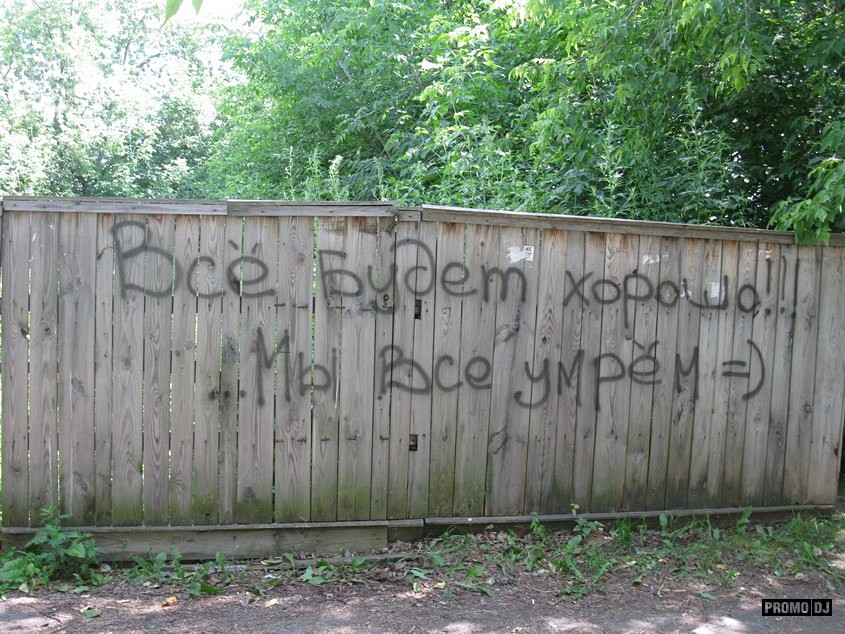 Всё Будет хорошо!!!
...Мы все умрём =)
PROMO DJ